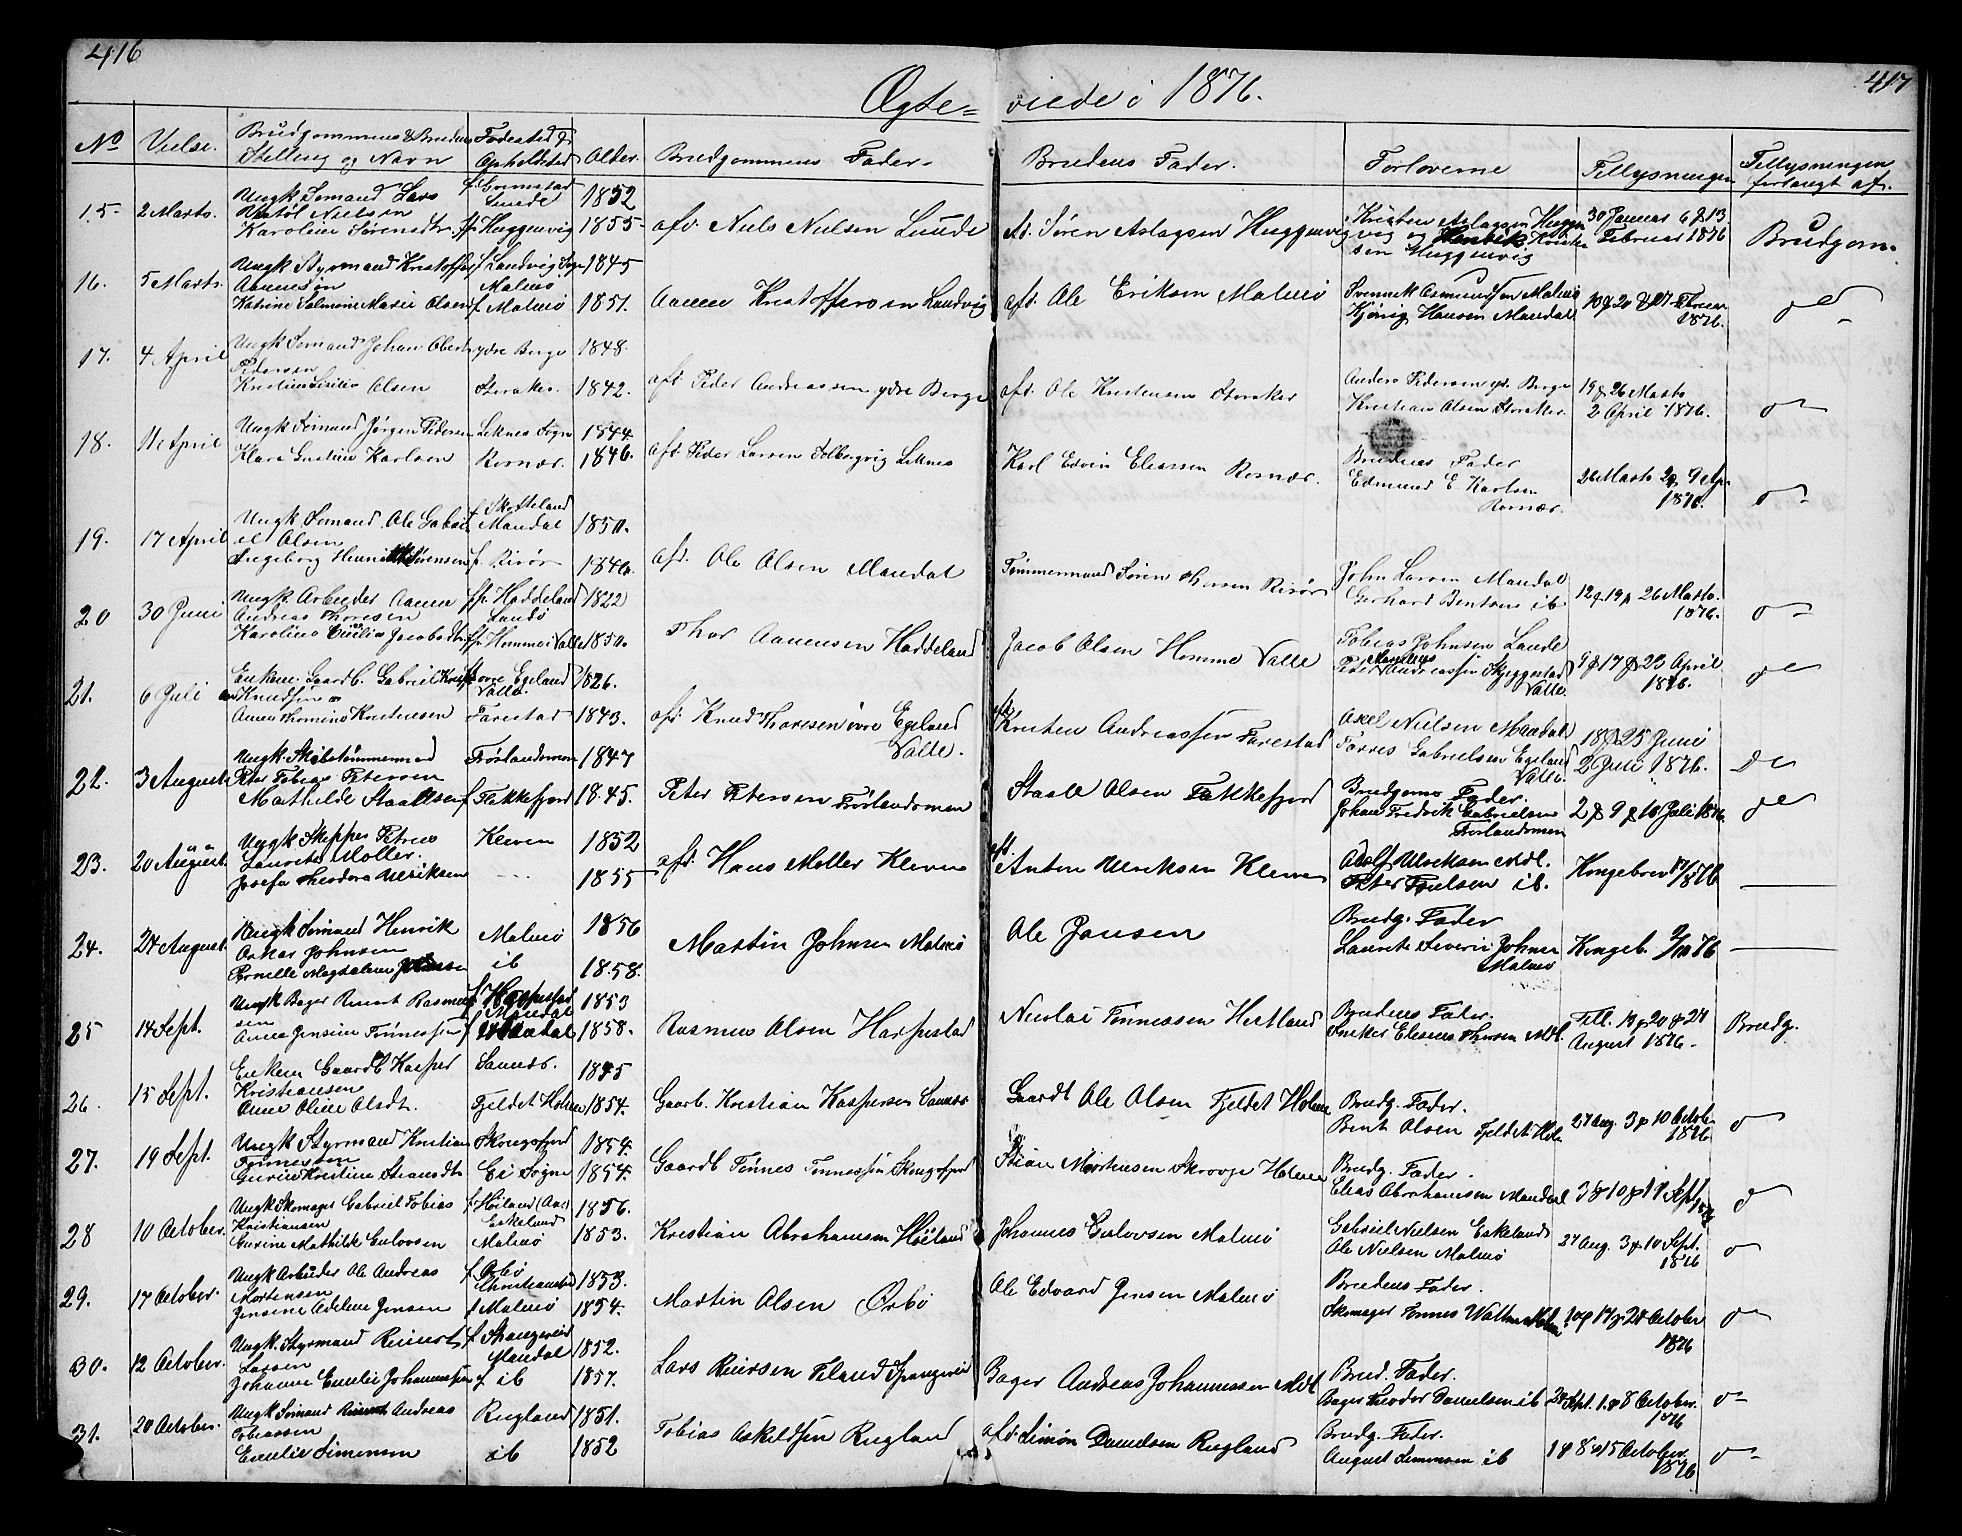 416
417
Ægte= viede i 1876.
No Vielse. Brudgommens & Brudens Stilling og Navn Fødested & Opholdsted Alder. Brudgommens Fader. Brudens Fader. Forloverne Tillysningen Tillysningen forlangt af.
15. 2 Marts. Ungk. Sømand Lars f. Grimstad 1852
Nielsen Lunde
Karoline Sørensdtr. Huggenvig 1855 afd. Niels Nielsen Lunde afd. Søren Aslagsen Huggenvig Kristen Aslagsen Huggenvig og Kristensen Huggenvig 30 Januar 6 & 13 Februar 1876 Brudgom.
16. 5 Marts. Ungk Styrmand Kristoffer f. Landvig Sogn 1845
Aanensen Malmø
Katrine Salmine Marie Olsen f. Malmø 1851. Aanen Kristoffersen Landvig afd. Ole Eriksen Malmø Svennik Osmundsen Malmø
Kjønig Hansen Mandal 13 & 20 & 27 Februar 1876. do
17. 4 April Ungk Sømand Johan Obert ydre Berge 1848.
Pedersen
Kristine Olsen Storaker. 1842. afd. Peder Andreassen ydre Berge afd. Ole Kristensen Storaker Anders Pedersen yd. Berge
Kristian Olsen Storaker. 19 & 26 Marts
2 April 1876. do
18. 11 April Ungk Sømand Jørgen Pedersen Leknes Sogn 1844.
Klara Gustine Karlsen Rosnær. 1846. afd. Peder Larsen Solbergvig Leknes Karl Edvin Eliassen Rosnær. Brudens Fader
Edmund E. Karlsen
Rosnær. 26 Marts 2 & 9 Apr. 1876. do
19. 17 April Ungk Sømand Ole Gabriel Olsen f. Skotteland Mandal 1850.
Ingeborg Sørensen f. Risør 1846. afd. Ole Olsen Mandal Tømmermand Søren Thorsen Risør John Larsen Mandal
Gerhard Bentsen ib 12 & 19 & 26 Marts. 1876. do
20 30 Juni Ungk. Arbeider Aanen f. Haddeland 1822
Andreas Thorsen Landø
Karoline Emilie Jacobsdtr. f. Homme i Valle 1850. Thor Aanensen Haddeland Jacob Olsen Homme Valle Tobias Johnsen Lande
Peder Andreassen Skjeggestad Valle. 9 & 17 & 23 April 1876. do
21. 6 Juli Enkem. Gaardb. Gabriel øvre Egeland Valle. 1826.
Knudsen
Anne Thomine Kristensen Farestad 1843. afd. Knud Thorsen øvre Egeland Valle. afd. Kristen Andreassen Farestad Axel Nielsen Mandal
Tørres Gabrielsen Egeland Valle 18 & 25 Juni
2 Juli 1876. do
22. 3 August Ungk. Skibstømmermand Frøslandsmoen 1847
Peter Tobias Petersen
Mathilde Staalesen f. Flekkefjord 1845. Peter Petersen Frøslandsmoen Staale Olsen Flekkefjord Brudgoms Fader.
Johan Fredrik Gabrielsen
Frøslandsmoen 2 & 9 & 16 Juli 1876. do
23. 20 August. Ungk Skipper Petrus Kleven 1852
Lauritz Møller.
Josefa Theodora Ulriksen 1855 afd. Hans Møller Kleven afd. Anton Ulriksen Kleven Adolf Ulriksen Mdl.
Peter ib. Kongebrev 1876
24. 24 August. Ungk Sømand Henrik Malmø 1856
Oskar Johnsen
Pernille Magdalene Jansen ib 1858. Martin Johnsen Malmø Ole Jansen Brudg. Fader
Laurits Severin Johnsen
Malmø Kongeb. 76
25 14 Sept. Ungk Bager Reinert Rasmussen f. Harpestad Mandal 1853
Anna Jensine Tønnessen f. Mandal 1858. Rasmus Olsen Harpestad Nicolai Tønnessen Hertland Brudens Fader.
Snekker Thorsen Mdl. Till. 13 & 20 & 27
August 1876. Brudg.
26. 15 Sept. Enkem Gaardb Kasper Sannes. 1845
Kristiansen
Anne Oline Olsdt. Fjeldet Holme 1854. Gaardb. Kristian Kaspersen Sannes Gaardb Ole Olsen Fjeldet Holme Brudg. Fader.
Bent Olsen Fjeldet Holm. 27 Aug. 3 & 10 October 1876 do
27. 19 Sept. Ungk Styrmand Kristian Skogsfjord 1854.
Tønnessen
Gurine Kristine Stiansdtr. Øi Sogne 1854. Gaardb Tønnes Tønnessen Skogsfjord Stian Mortensen Skrovje Holme Brudg. Fader.
Elias Abrahamsen Mandal 3 & 10 & 17 Sept 1876 do
28 10 October. Ungk Skomager Gabriel Tobias f. Høiland 1856.
Kristiansen Eskeland
Gurine Mathilde Gulovsen Malmø 1853. Kristian Abrahamsen Høiland Johannes Gulovsen Malmø Gabriel Nielsen Eskeland
Ole Nielsen Malmø 27 Aug. 3 & 10 Sept. 1876 do
29. 17 October. Ungk Arbeider Ole Andreas f. Orbø 1853.
Mortensen Christianssand
Jensine Adeline Jensen f. Malmø 1854. Martin Olsen Orbø Ole Edvard Jensen Malmø Brudens Fader.
Skomager Tønnes 10 & 17 & 24 October 1876 do
30. 12 October. Ungk. Styrmand Reinert f. Spangereid 1852.
Larsen Mandal
Johanne Emilie Johannessen f. ib 1857. Lars Reiersen Spangereid Bager Andreas Johannessen Mdl Brud. Fader.
Bager Theodor Danielsen ib 24 Sept. 1 & 8 October. 1876 do
31. 20 October. Ungk Sømand Andreas Rugland 1851.
Tobiassen
Emilie Simonsen ib 1852 Tobias Askildsen Rugland afd. Simon Danielsen Rugland Brudg. Fader.
August Simonsen ib 1 & 8 & 15 October. 1876 do